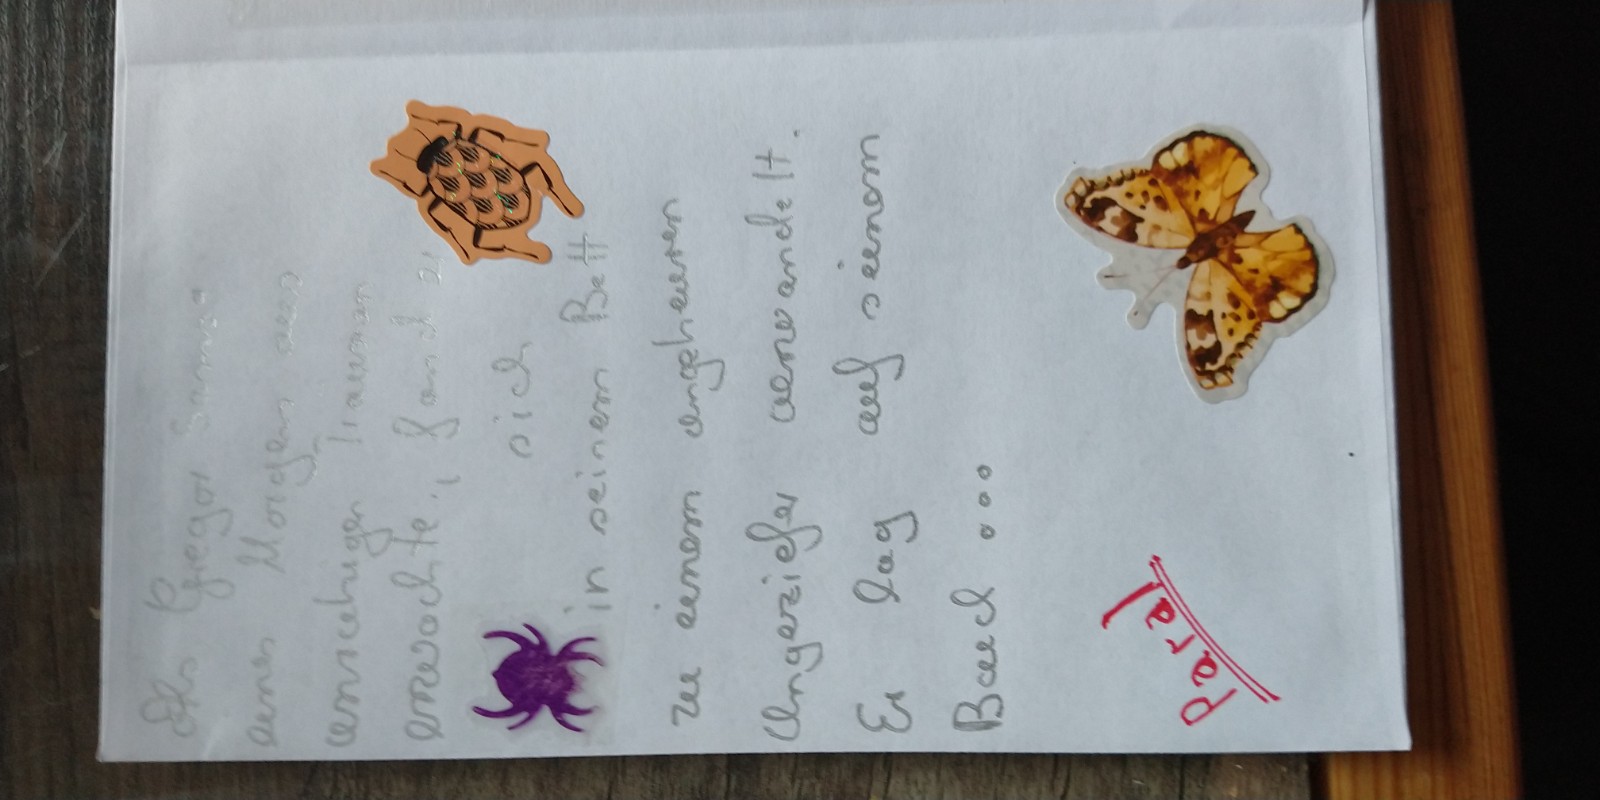 Als Gregor Samsa
eines Morgens aus
unruhigen Träumen
erwachte, fand er
sich
in seinem Bett
zu einem ungeheuren
Ungeziefer verwandelt.
Er lag auf seinem
Bauch ...
Paral